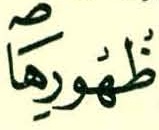 ظُهُورِهَا ۖ